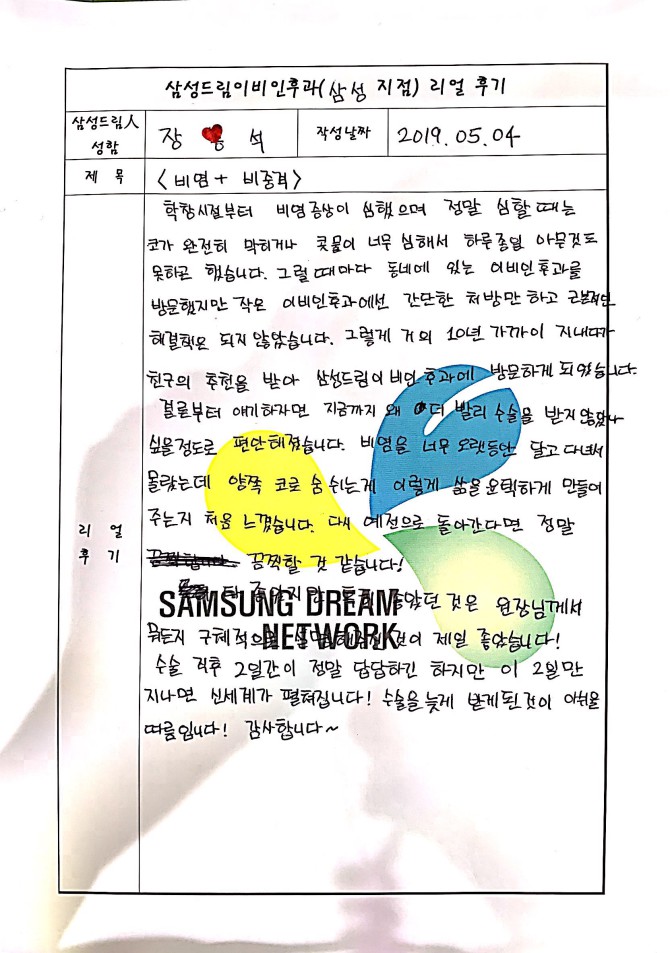 삼성드림이비인후과(삼성 지점) 리얼 후기
삼성드림人 성함
장 석
작성날짜
2019.05.04
제 목
<비염 + 비중격>
리 얼 후 기
학창시절부터 비염증상이 심했으며 정말 심할 때는
코가 완전히 막히거나 콧물이 너무 심해서 하루종일 아무것도
못하곤 했습니다. 그럴 때마다 동네에 있는 이비인후과를
방문했지만 작은 이비인후과에선 간단한 처방만 하고 근본적인
해결책은 되지 않았습니다. 그렇게 거의 10년 가까이 지내다가
친구의 추천을 받아 삼성드림이비인후과에 방문하게 되었습니다.
결론부터 얘기하자면 지금까지 왜 더 빨리 수술을 받지 않았나
싶을 정도로 편안해졌습니다. 비염을 너무 오랫동안 달고 다녀서
몰랐는데 양쪽 코로 숨 쉬는게 이렇게 삶을 윤택하게 만들어
주는지 처음 느꼈습니다. 다시 예전으로 돌아간다면 정말
끔찍할 것 같습니다!
다 좋았지만 특히 좋았던 것은 원장님께서
뭐든지 구체적으로 설명해주신 것이 제일 좋았습니다!
SAMSUNG DREAM
NETWORK
수술 직후 2일간이 정말 답답하긴 하지만 이 2일만
지나면 신세계가 펼쳐집니다! 수술을 늦게 받게 된 것이 아쉬울
따름입니다! 감사합니다~